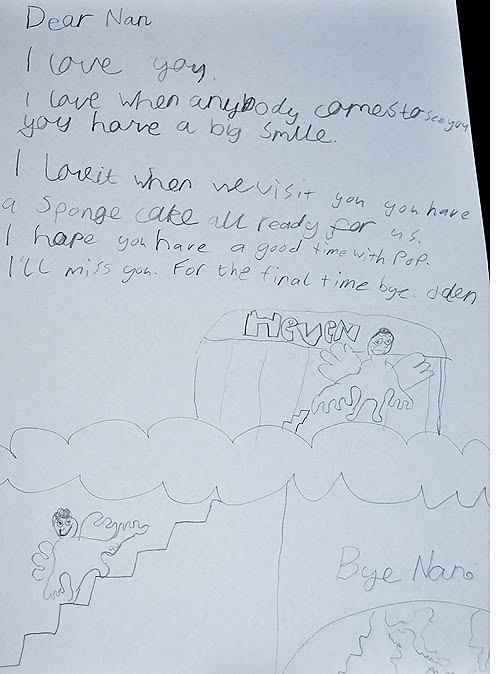 Dear Nan
I love you.
I love when anybody comes to see you
you have a big smile.
I love it when we visit you you have
a sponge cake all ready for us.
I hope you have a good time with Pop.
I'll miss you. For the final time bye. Aden
Heven
Bye Nan